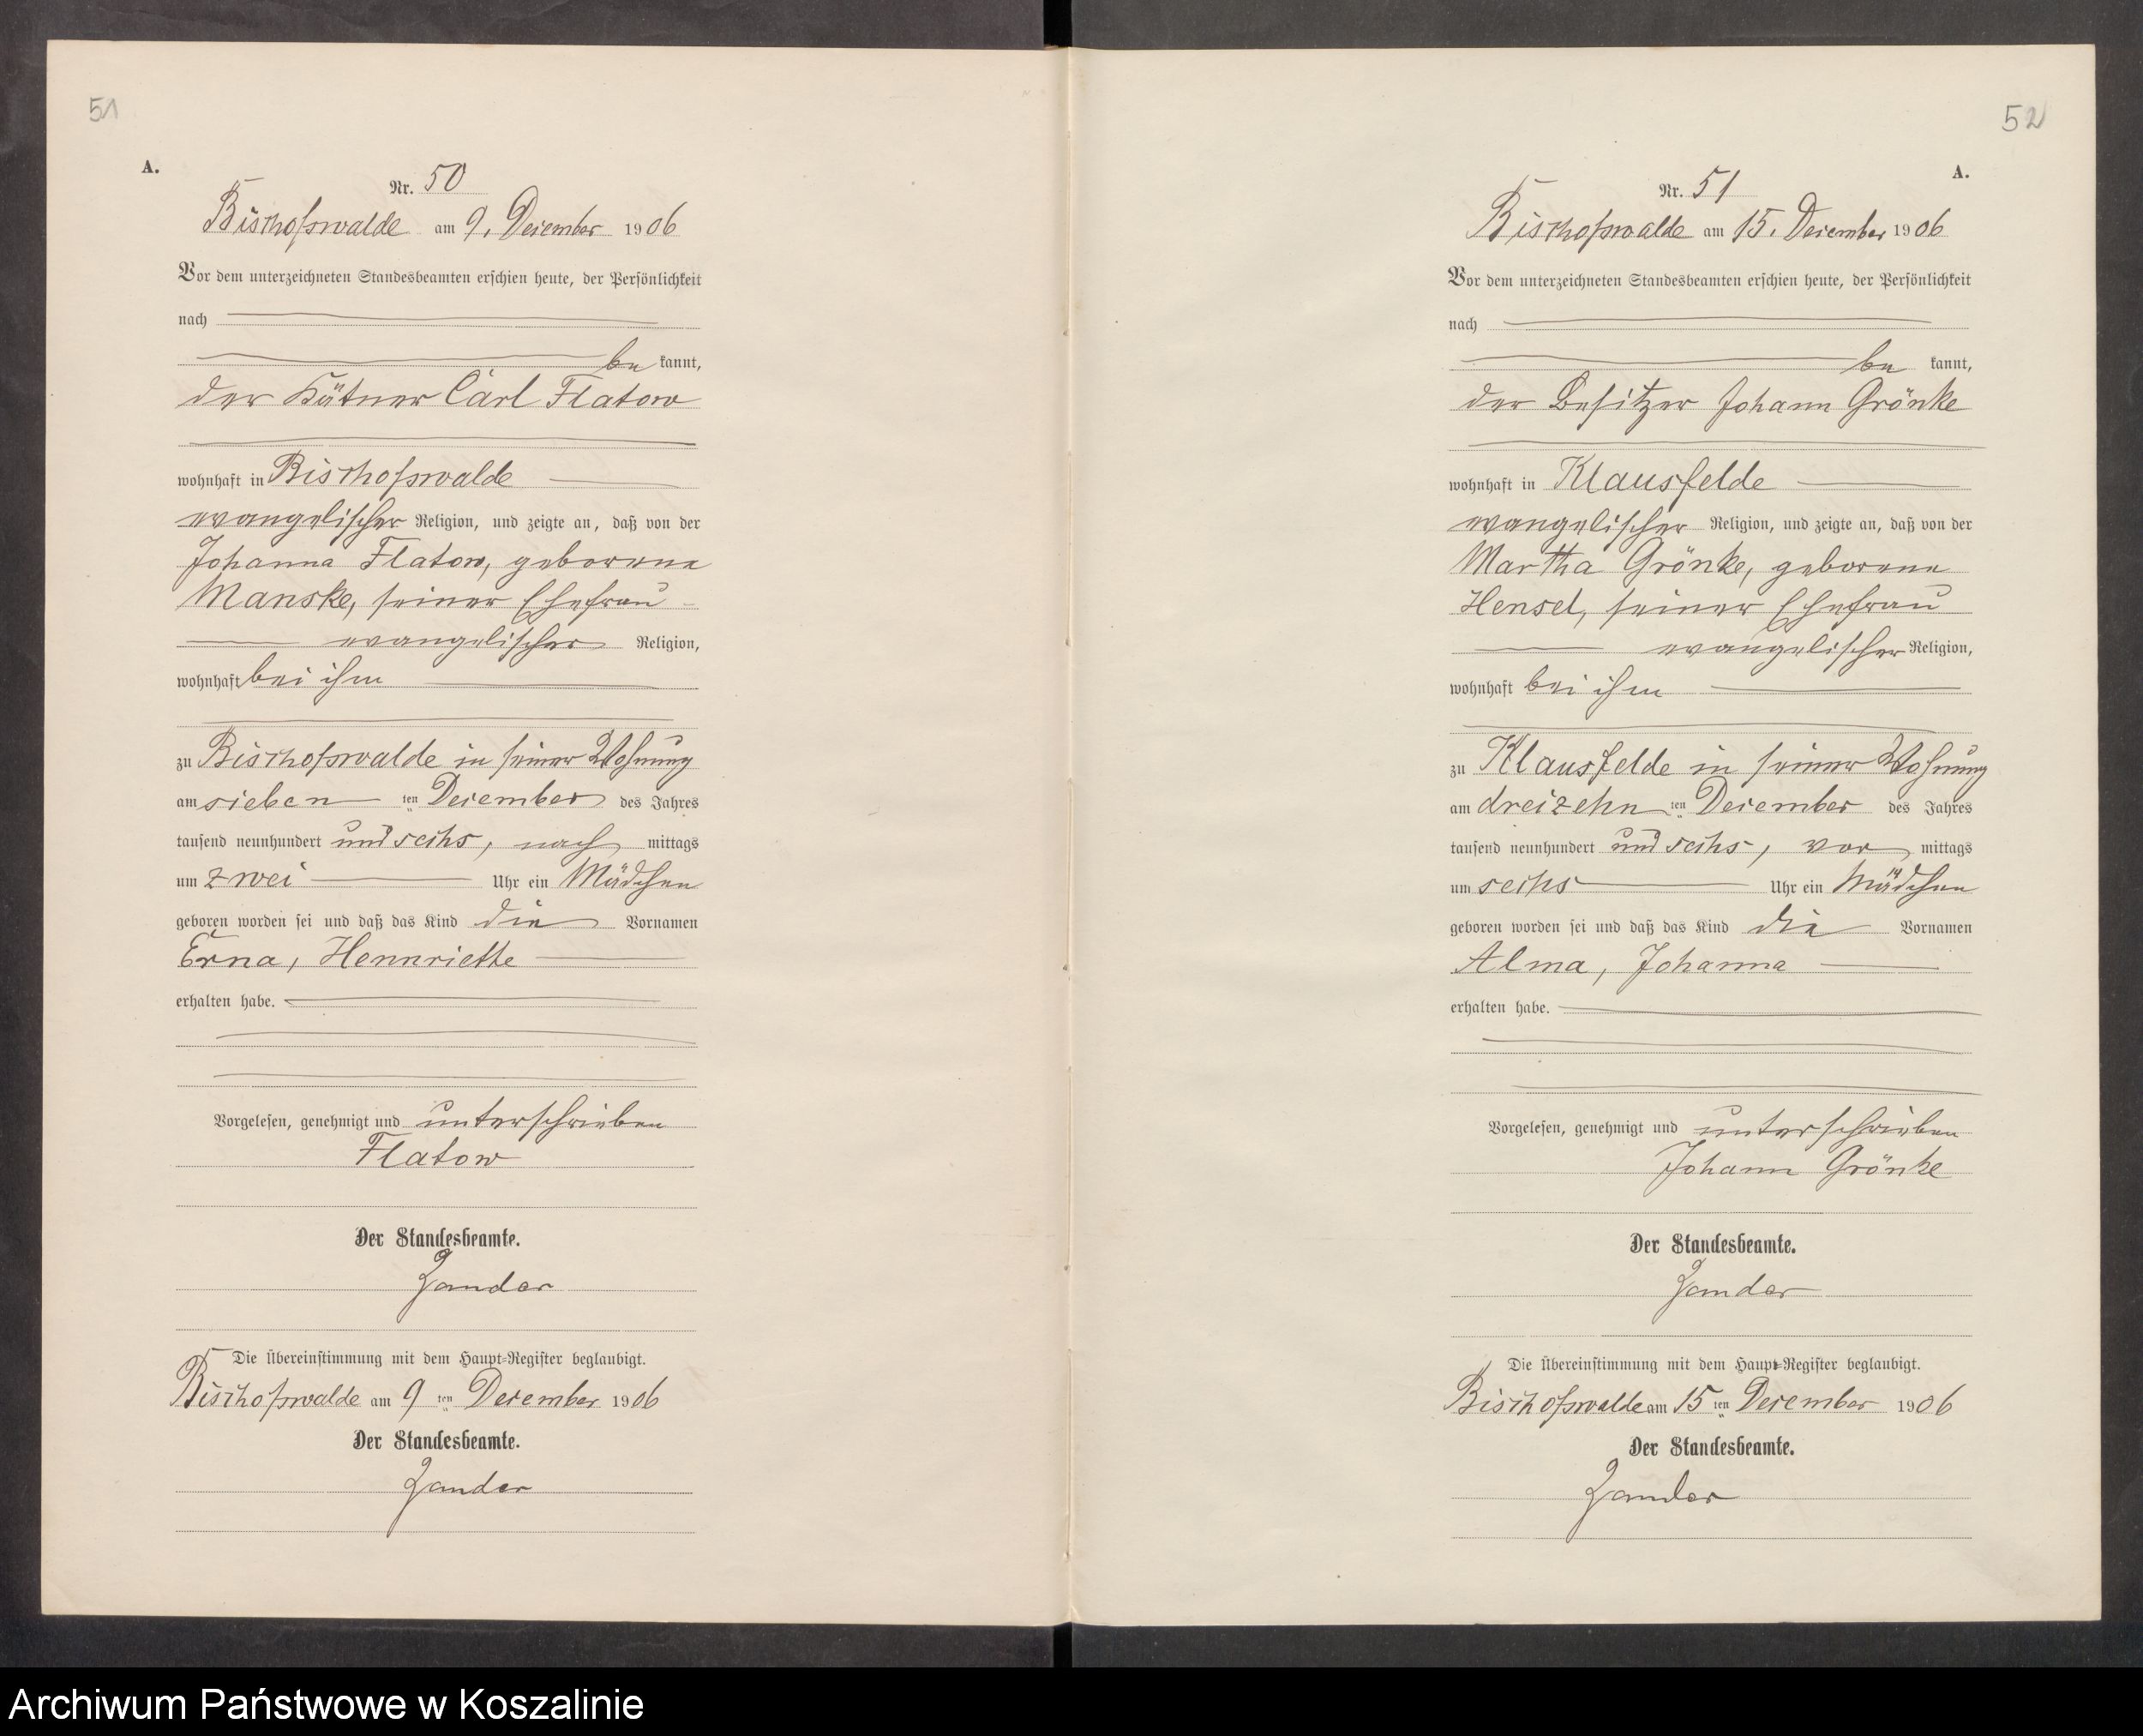 51
A.
Nr. 50
Bischofswalde am 9. Dezember 1906
Vor dem unterzeichneten Standesbeamten erschien heute, der Persönlichkeit
nach
be kannt,
der Kätner Carl Flatow
wohnhaft in Bischofswalde
evangelischer Religion, und zeigte an, daß von der
Johanna Flatow, geborene
Manske, seiner Ehefrau
evangelischer Religion,
wohnhaft bei ihm
zu Bischofswalde in seiner Wohnung
am sieben ten Dezember des Jahres
tausend neunhundert und sechs, nach mittags
um zwei Uhr ein Mädchen
geboren worden sei und daß das Kind die Vornamen
Erna, Hennriette
erhalten habe.
Vorgelesen, genehmigt und unterschrieben
Flatow
Der Standesbeamte.
Zander
Die Übereinstimmung mit dem Haupt-Register beglaubigt.
Bischofswalde am 9 ten Dezember 1906
Der Standesbeamte.
Zander
52
A.
Nr. 51
Bischofswalde am 15. Dezember 1906
Vor dem unterzeichneten Standesbeamten erschien heute, der Persönlichkeit
nach
be kannt,
der Besitzer Johann Grönke
wohnhaft in Klausfelde
evangelischer Religion, und zeigte an, daß von der
Martha Grönke, geborene
Hensel, seiner Ehefrau
evangelischer Religion,
wohnhaft bei ihm
zu Klausfelde in seiner Wohnung
am dreizehn ten Dezember des Jahres
tausend neunhundert und sechs, vor mittags
um sechs Uhr ein Mädchen
geboren worden sei und daß das Kind die Vornamen
Alma, Johanna
erhalten habe.
Vorgelesen, genehmigt und unterschrieben
Johann Grönke
Der Standesbeamte.
Zander
Die Übereinstimmung mit dem Haupt-Register beglaubigt.
Bischofswalde am 15 ten Dezember 1906
Der Standesbeamte.
Zander
Archiwum Państwowe w Koszalinie